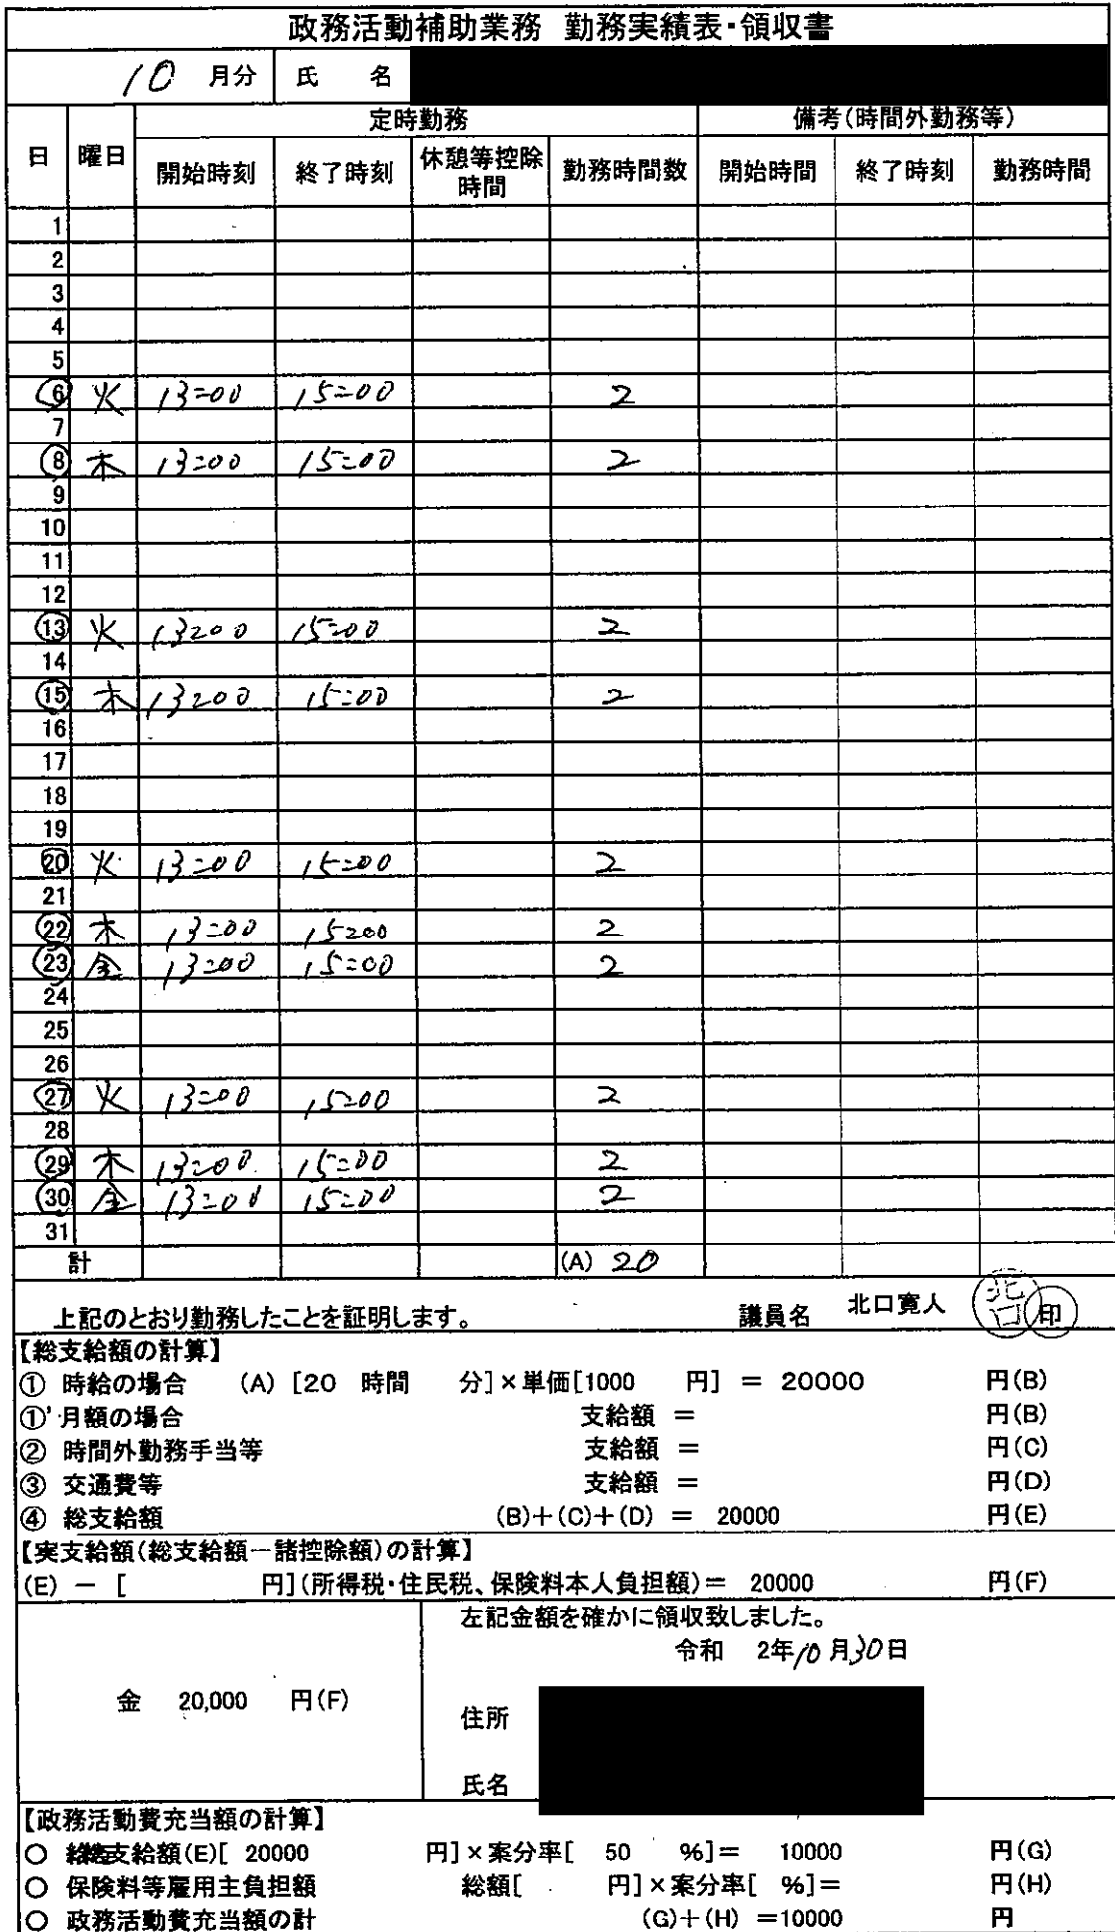 政務活動補助業務 勤務実績表・領収書
10 月分 氏 名
定時勤務 備考(時間外勤務等)
日 曜日 開始時刻 終了時刻 休憩等控除時間 勤務時間数 開始時間 終了時刻 勤務時間
1
2
3
4
5
6 火 13:00 15:00 2
7
8 木 13:00 15:00 2
9
10
11
12
13 火 13:00 15:00 2
14
15 木 13:00 15:00 2
16
17
18
19
20 火 13:00 15:00 2
21
22 木 13:00 15:00 2
23 金 13:00 15:00 2
24
25
26
27 火 13:00 15:00 2
28
29 木 13:00 15:00 2
30 金 13:00 15:00 2
31
計 (A) 20
上記のとおり勤務したことを証明します。 議員名 北口寛人 北口 印
【総支給額の計算】
① 時給の場合 (A) [20 時間 分]×単価[1000 円] = 20000 円(B)
①' 月額の場合 支給額 = 円(B)
② 時間外勤務手当等 支給額 = 円(C)
③ 交通費等 支給額 = 円(D)
④ 総支給額 (B)+(C)+(D) = 20000 円(E)
【実支給額(総支給額-諸控除額)の計算】
(E) - [ 円](所得税・住民税、保険料本人負担額)= 20000 円(F)
左記金額を確かに領収致しました。
令和 2年10月30日
金 20,000 円(F)
住所
氏名
【政務活動費充当額の計算】
○ 支給額(E)[ 20000 円]×案分率[ 50 %]= 10000 円(G)
○ 保険料等雇用主負担額 総額[ 円]×案分率[ %]= 円(H)
○ 政務活動費充当額の計 (G)+(H) =10000 円